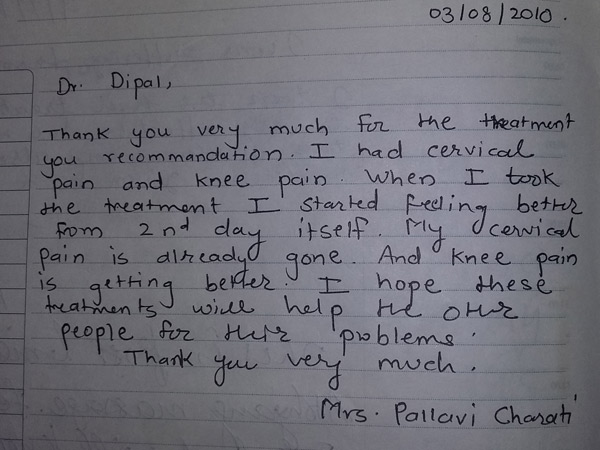 03/08/2010.
Dr. Dipal,
Thank you very much for the treatment
you recommandation. I had cervical
pain and knee pain. When I took
the treatment I started feeling better
from 2nd day itself. My cervical
pain is already gone. And knee pain
is getting better. I hope these
treatments will help the other
people for their problems.
Thank you very much.
Mrs. Pallavi Charati